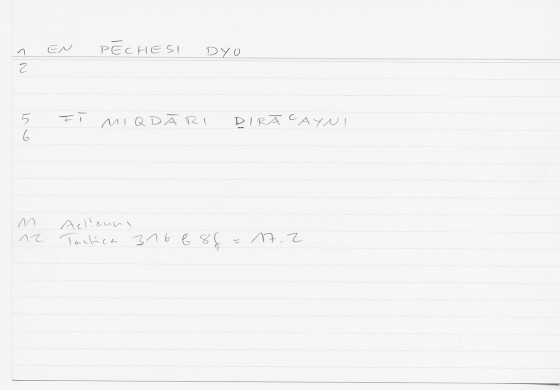 1 EN PĒCHESI DYO
2
5 FĪ MIQDĀRI ḎIRĀʿAYNI
6
11 Aelianus
12 Tactica 316 B 8f = 17.2